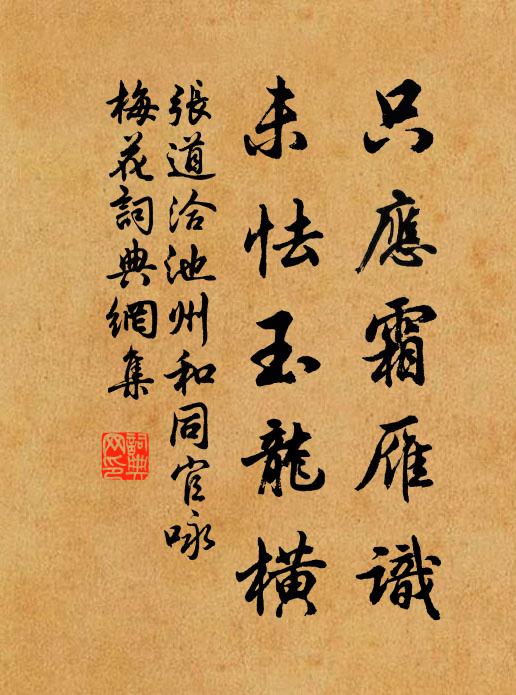 只應霜雁識
未怯玉龍橫
張道洽池州和同官咏
梅花詞典網集
詞典網印